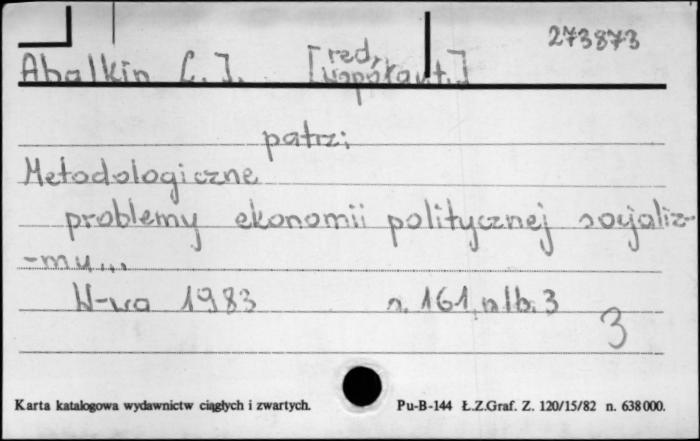 273873
Abalkin L. I. [red, współaut.]
patrz:
Metodologiczne
problemy ekonomii politycznej socjaliz-
-mu...
W-wa 1983 s. 161, nlb. 3
3
Karta katalogowa wydawnictw ciągłych i zwartych. Pu-B-144 Ł.Z.Graf. Z. 120/15/82 n. 638000.